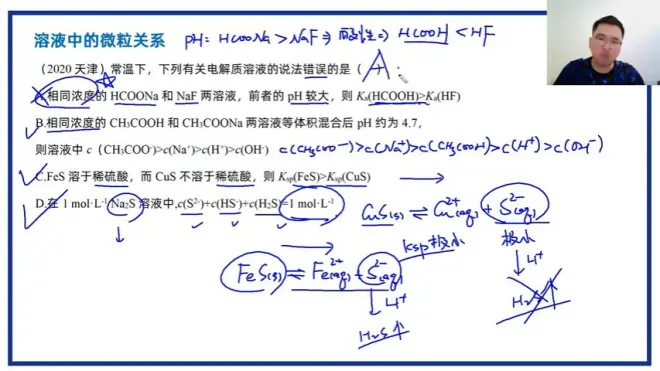 溶液中的微粒关系
pH: HCOONa > NaF ⇒ 酸性⇒ HCOOH < HF
(2020天津)常温下,下列有关电解质溶液的说法错误的是( A )
A.相同浓度的 HCOONa 和 NaF 两溶液,前者的 pH 较大,则 Ka(HCOOH)>Ka(HF)
B.相同浓度的 CH₃COOH 和 CH₃COONa 两溶液等体积混合后 pH 约为 4.7,
则溶液中 c(CH₃COO⁻)>c(Na⁺)>c(H⁺)>c(OH⁻)
c(CH₃COO⁻)>c(Na⁺)>c(CH₃COOH)>c(H⁺)>c(OH⁻)
C.FeS 溶于稀硫酸,而 CuS 不溶于稀硫酸,则 Ksp(FeS)>Ksp(CuS)
D.在 1 mol·L⁻¹ Na₂S 溶液中,c(S²⁻)+c(HS⁻)+c(H₂S)=1 mol·L⁻¹
CuS(s) ⇌ Cu²⁺(aq) + S²⁻(aq)
Ksp极小
极小
FeS(s) ⇌ Fe²⁺(aq) + S²⁻(aq)
H⁺
H₂S↑
H⁺
H₂S↑